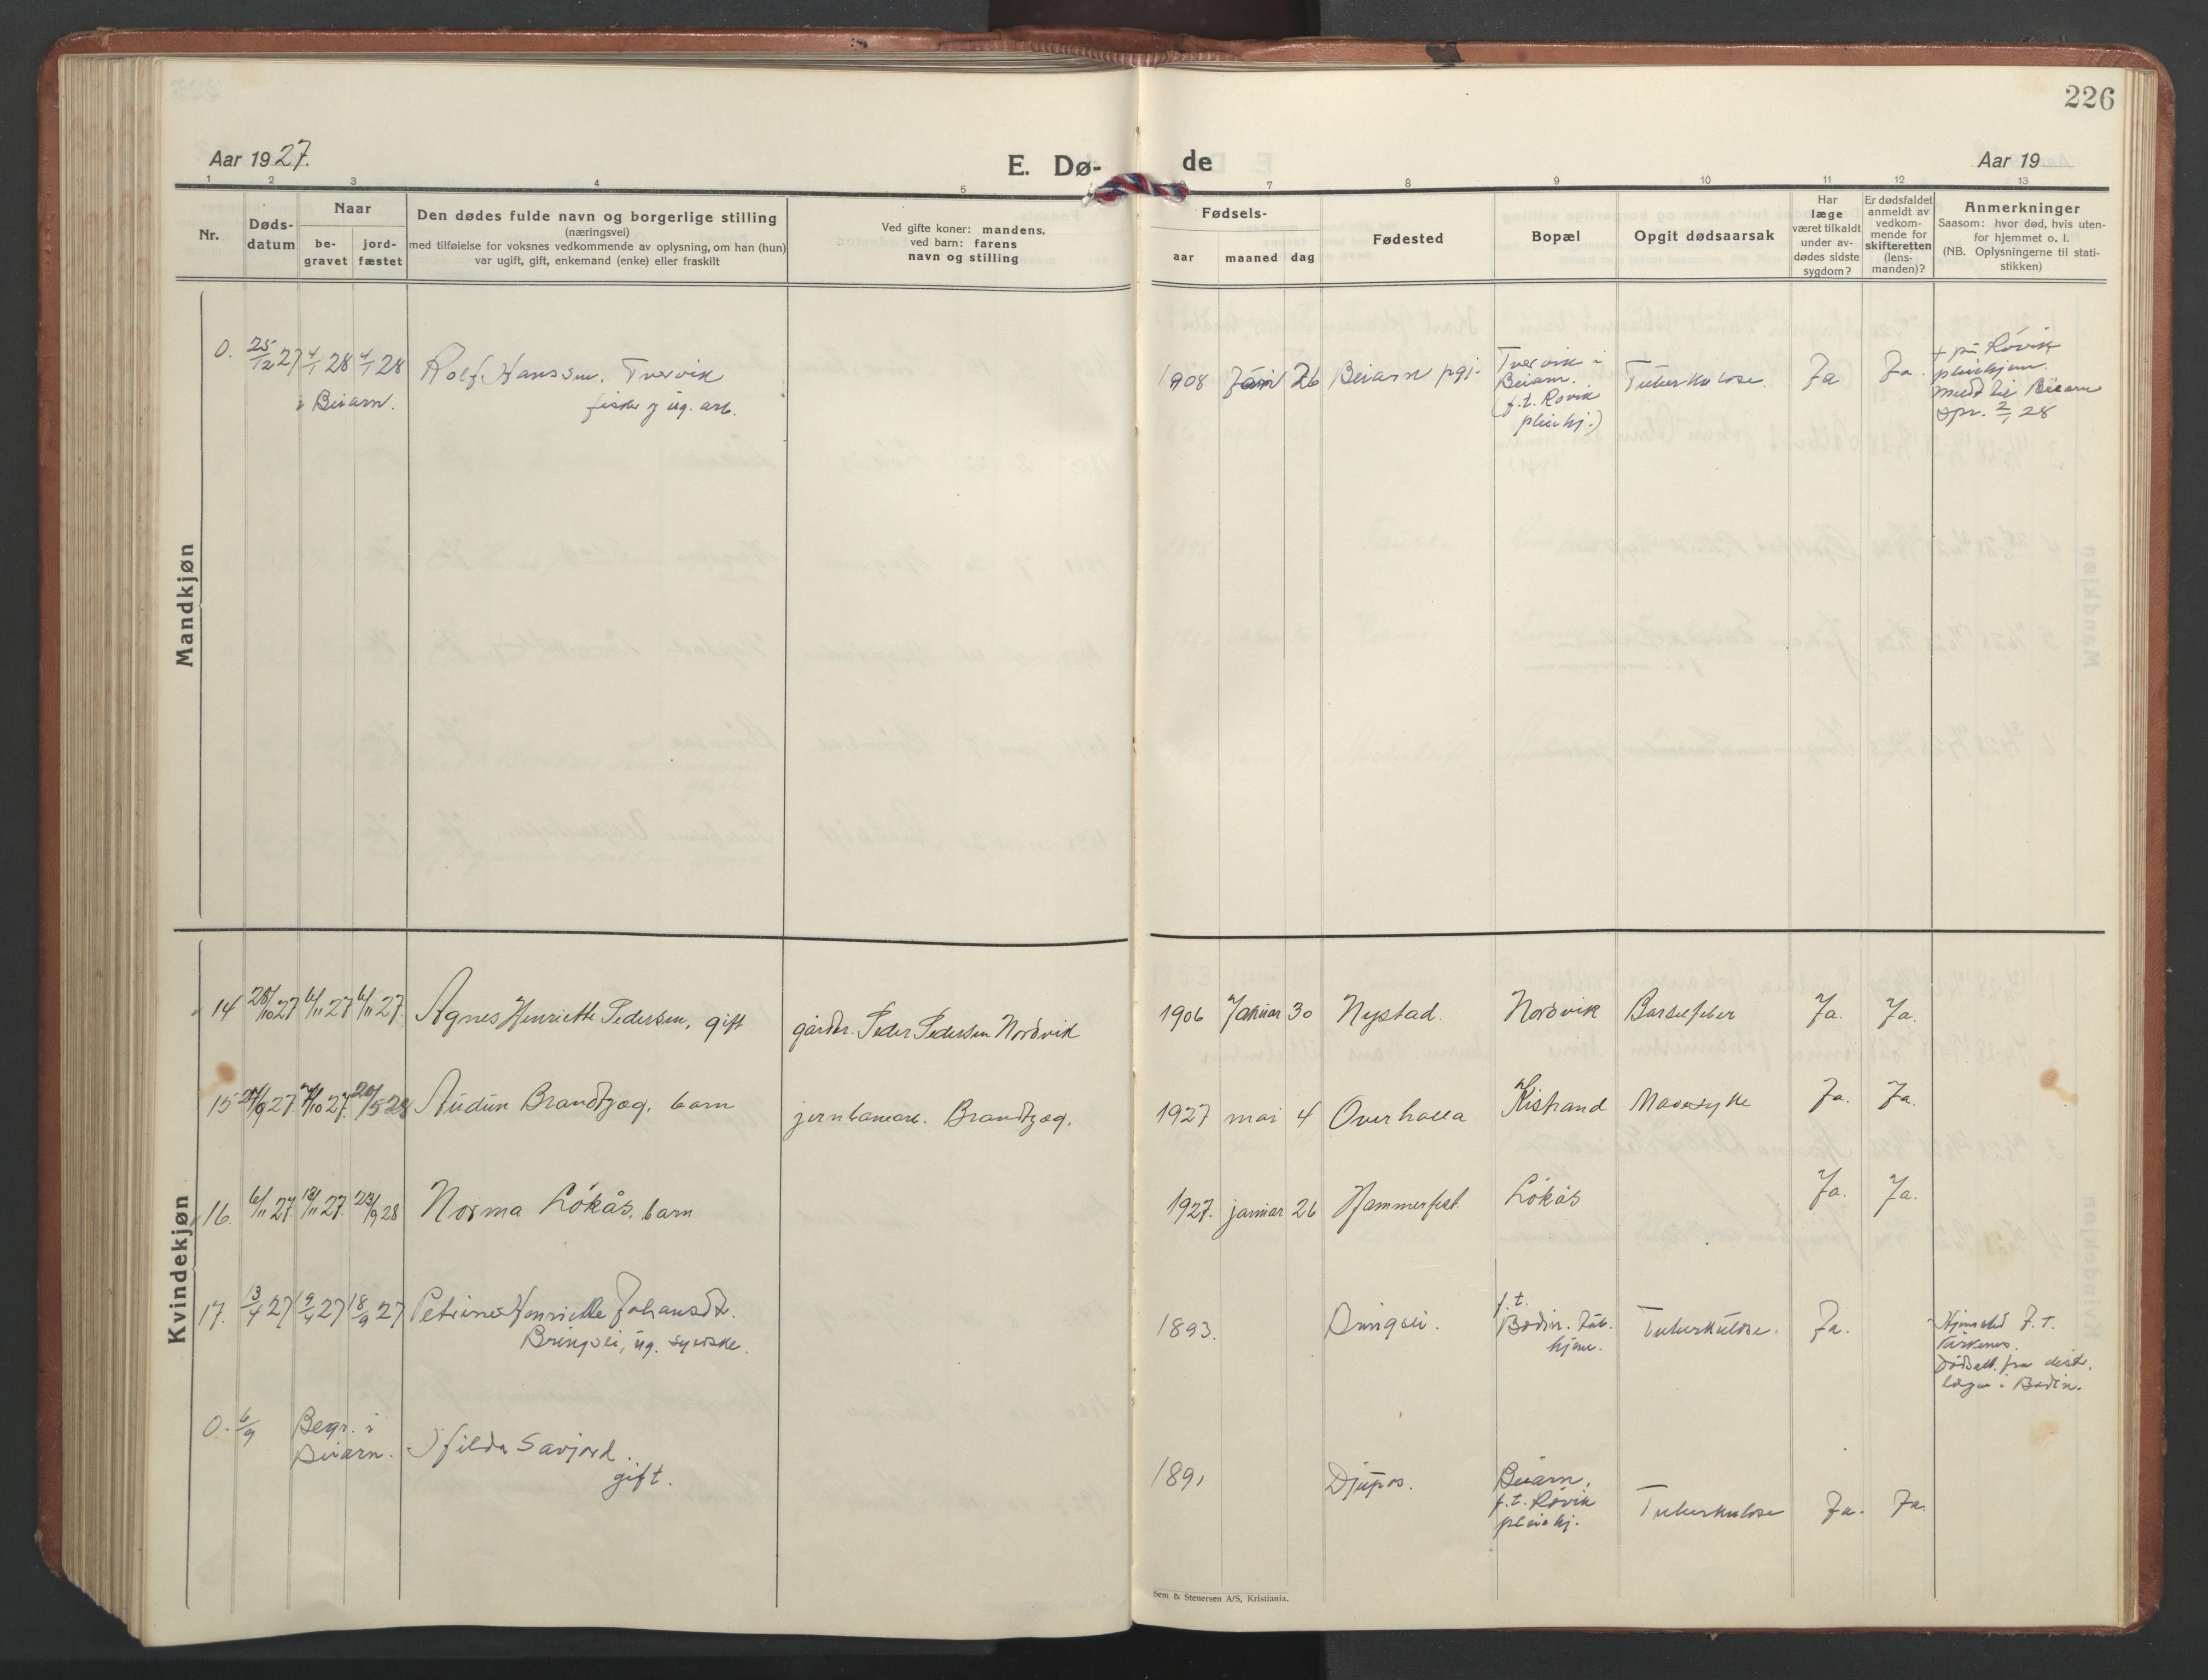 226
Aar 1927.
E. Dø-
de
Aar 19
1 2 3 4 5 7 8 9 10 11 12 13
Nr.
Døds-
datum
Naar
be-
gravet
jord-
fæstet
Den dødes fulde navn og borgerlige stilling
(næringsvei)
med tilføielse for voksnes vedkommende av oplysning, om han (hun)
var ugift, gift, enkemand (enke) eller fraskilt
Ved gifte koner: mandens,
ved barn: farens
navn og stilling
Fødsels-
aar
maaned
dag
Fødested
Bopæl
Opgit dødsaarsak
Har
læge
været tilkaldt
under av-
dødes sidste
sygdom?
Er dødsfaldet
anmeldt av
vedkom-
mende for
skifteretten
(lens-
manden)?
Anmerkninger
Saasom: hvor død, hvis uten-
for hjemmet o. l.
(NB. Oplysningerne til stati-
stikken)
Mandkjøn
0. 25/12 27 4/1 28 4/1 28 Rolf Hanssen. Tvervik
i Beiarn. fisker og ug. arb.
1908 Jan 26 Beiarn pgj.
Tvervik i
Beiarn.
(f.t. Røvik
pleiehj.)
Tuberkulose. Ja Ja.
+ på Røvik
pleiehjem.
meldt til Beiarn
opr. 2/1 28
Kvindekjøn
14 28/10 27 6/11 27 6/11 27. Agnes Henriette Pedersen, gift gårdbr. Peder Pedersen Nordvik 1906 Januar 30 Nystad. Nordvik Barselfeber Ja. Ja.
15 27/9 27. 7/10 27. 20/5 28 Audun Brandtzæg, barn jernbanearb. Brandtzæg. 1927 mai 4 Overhalla Kistrand Mavesyke Ja. Ja.
16. 6/11 27. 13/11 27. 23/9 28 Norma Løkås, barn 1927. januar 26 Hammerfest. Løkås Ja. Ja.
17. 13/4 27 19/4 27 18/9 27 Petrine Henriette Johansdt.
Bringsli, ug. syerske.
1893. Bringsli.
f.t.
Bodin. Tub.
hjem.
Tuberkulose. Ja.
Hjemsted f.t.
Kirkenes.
Dødsatt. fra distr.
læge i Bodin.
0. 6/9 Begr. i
Beiarn. Hilda Savjord.
gift.
1891 Djupos.
Beiarn,
f.t. Røvik
pleiehj.
Tuberkulose Ja. Ja.
Sem & Stenersen A/S, Kristiania.